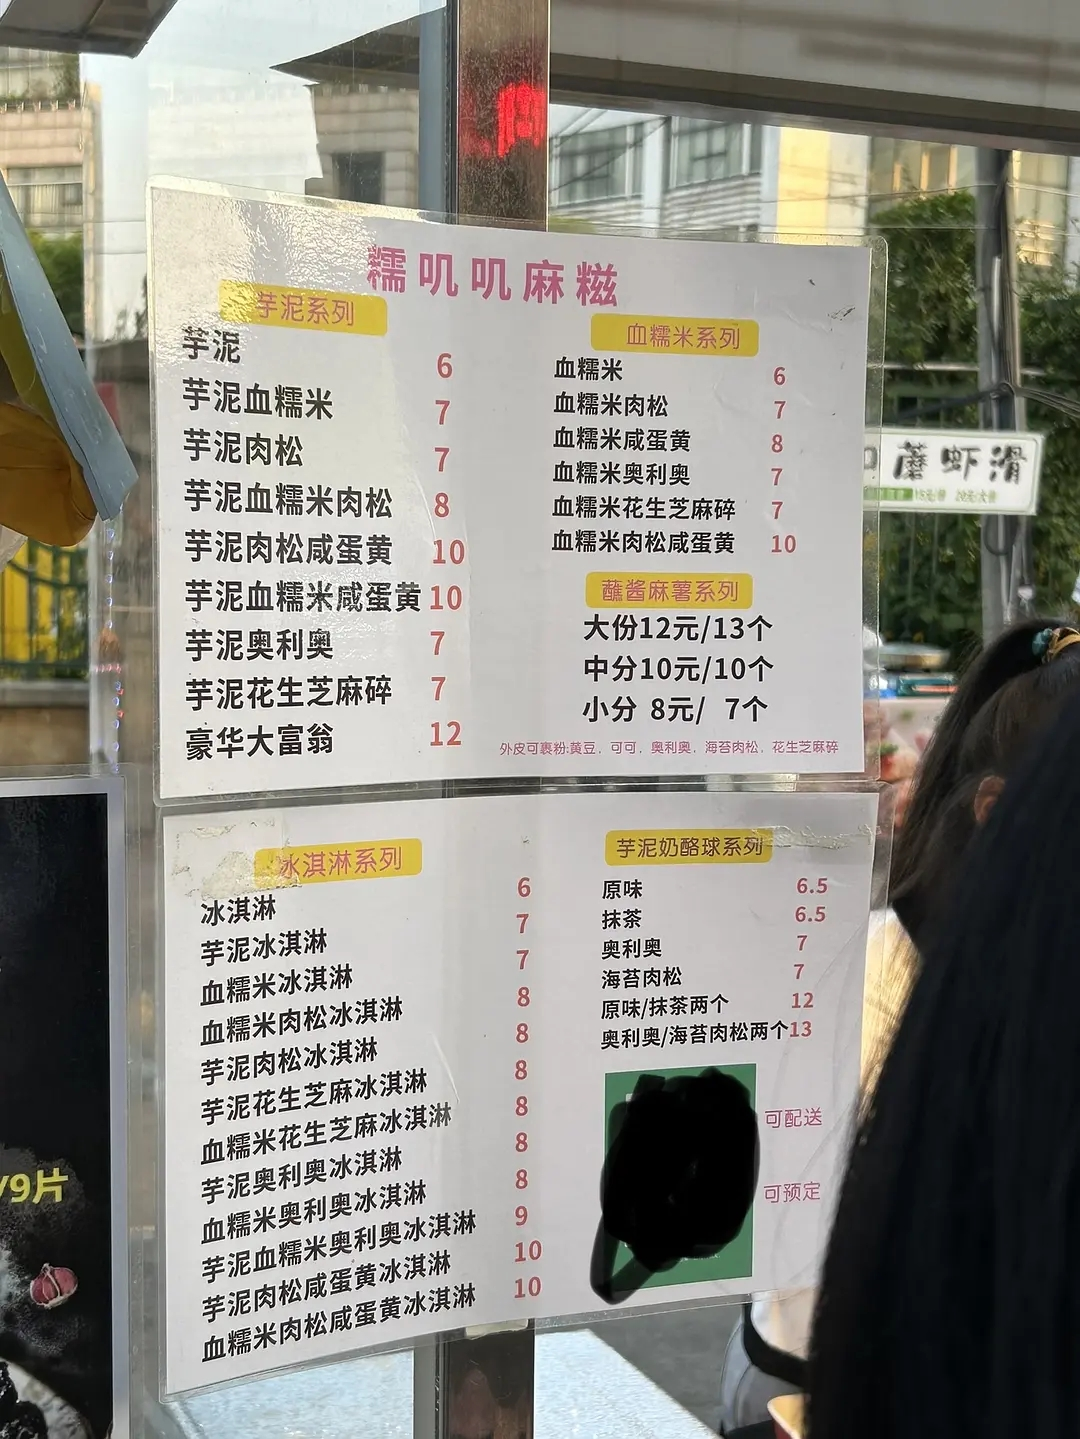 糯叽叽麻糍
芋泥系列
芋泥 6
芋泥血糯米 7
芋泥肉松 7
芋泥血糯米肉松 8
芋泥肉松咸蛋黄 10
芋泥血糯米咸蛋黄 10
芋泥奥利奥 7
芋泥花生芝麻碎 7
豪华大富翁 12
血糯米系列
血糯米 6
血糯米肉松 7
血糯米咸蛋黄 8
血糯米奥利奥 7
血糯米花生芝麻碎 7
血糯米肉松咸蛋黄 10
蘸酱麻薯系列
大份12元/13个
中分10元/10个
小分 8元/ 7个
外皮可裹粉:黄豆、可可、奥利奥、海苔肉松、花生芝麻碎
冰淇淋系列
冰淇淋 6
芋泥冰淇淋 7
血糯米冰淇淋 7
血糯米肉松冰淇淋 8
芋泥肉松冰淇淋 8
芋泥花生芝麻冰淇淋 8
血糯米花生芝麻冰淇淋 8
芋泥奥利奥冰淇淋 8
血糯米奥利奥冰淇淋 8
芋泥血糯米奥利奥冰淇淋 9
芋泥肉松咸蛋黄冰淇淋 10
血糯米肉松咸蛋黄冰淇淋 10
芋泥奶酪球系列
原味 6.5
抹茶 6.5
奥利奥 7
海苔肉松 7
原味/抹茶两个 12
奥利奥/海苔肉松两个13
可配送
可预定
蘑虾滑
15元/份 20元/大份
/9片